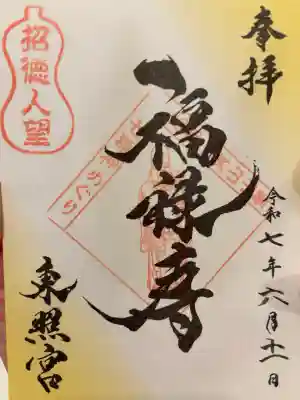 奉拝
令和七年六月十一日
福禄寿
招徳人望
めぐり
東照宮